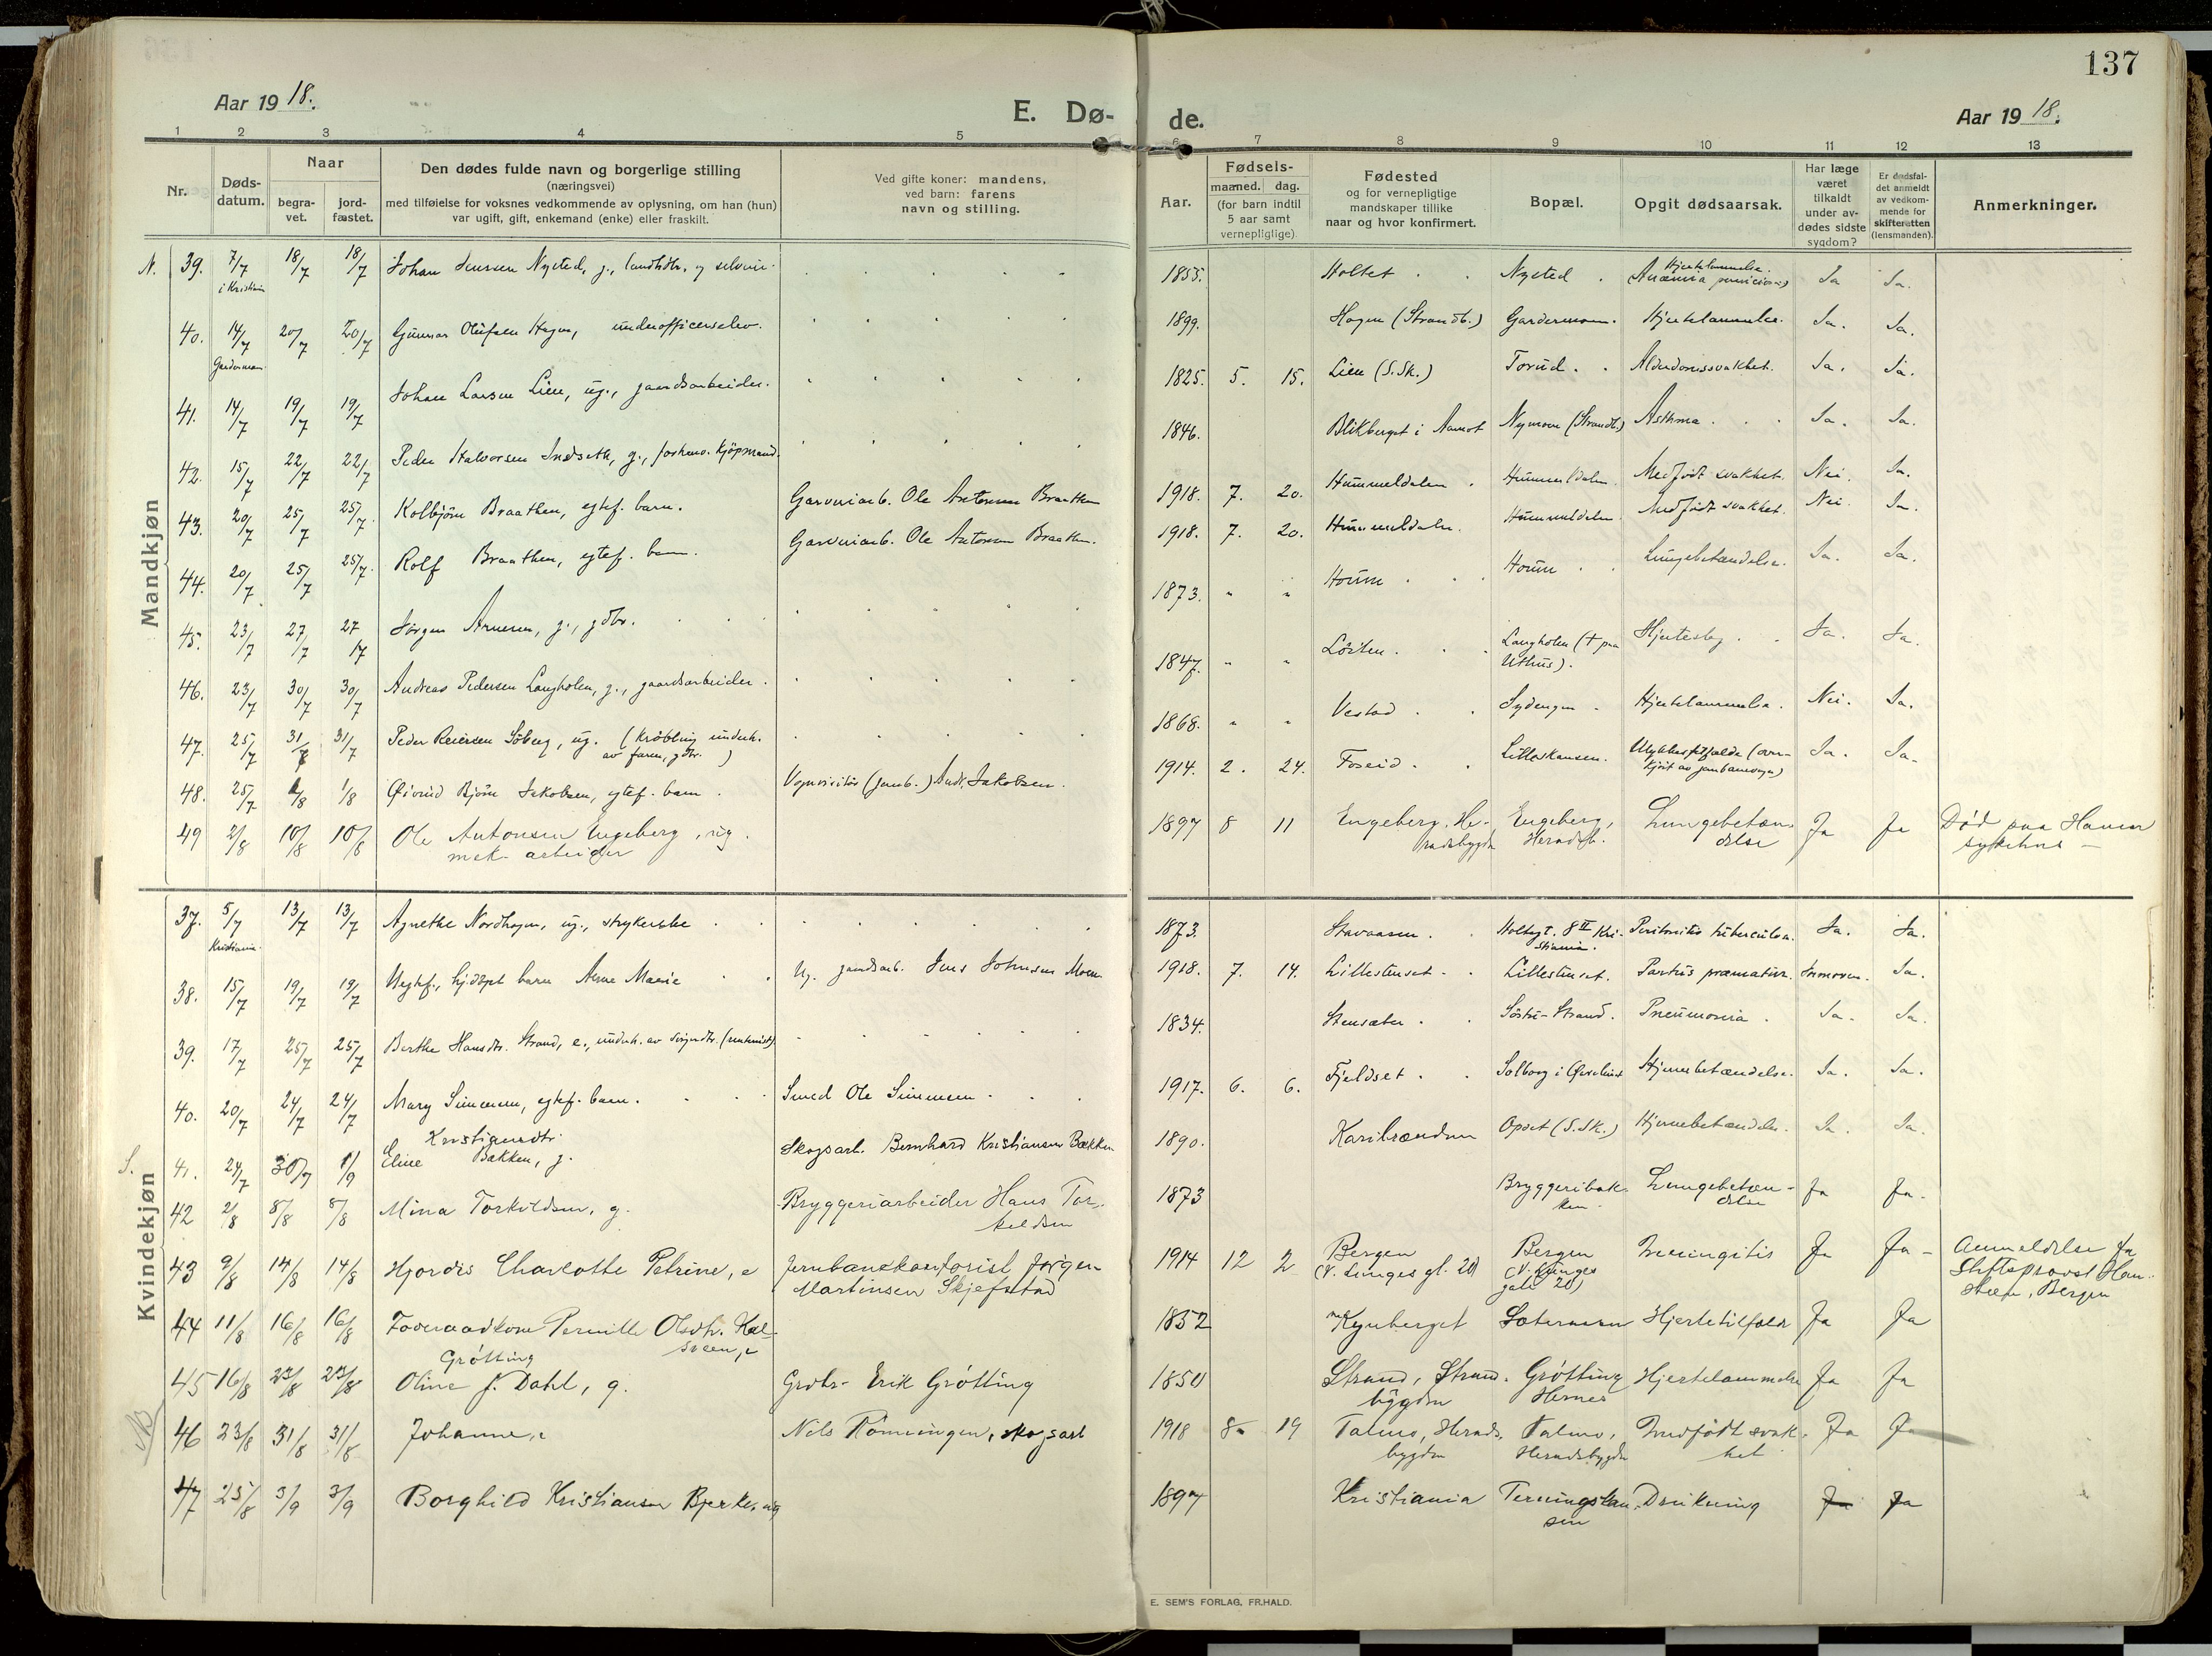 137
Aar 1918.
E. Dø-
de.
Aar 1918.
1 2 3 4 5
7 8 9 10 11 12 13
Nr.
Døds-
datum.
Naar
begra-
vet.
jord-
fæstet.
Den dødes fulde navn og borgerlige stilling
(næringsvei)
med tilføielse for voksnes vedkommende av oplysning, om han (hun)
var ugift, gift, enkemand (enke) eller fraskilt.
Ved gifte koner: mandens,
ved barn: farens
navn og stilling.
Aar.
Fødsels-
maaned. dag.
(for barn indtil
5 aar samt
vernepligtige)
Fødested
og for vernepligtige
mandskaper tillike
naar og hvor konfirmert.
Bopæl.
Opgit dødsaarsak.
Har læge
været
tilkaldt
under av-
dødes sidste
sygdom?
Er dødsfal-
det anmeldt
av vedkom-
mende for
skifteretten
(lensmanden).
Anmerkninger.
Mandkjøn
N. 39. 7/7 18/7 18/7 Johan Jensen Nysted, g., landhdlr. og 1853. Holtet Nysted Hjertelammelse. Ja Ja.
i Kristiania (Anæmia perniciosa)
40. 14/7 20/7 20/7 Gunnar Olufsen Hagen, underofficerselev. 1899. Hagen (Strandb.) Gardermoen. Hjertelammelse. Ja. Ja.
Gardermoen
41. 14/7 19/7 19/7 Johan Larsen Lien, ug., gaardsarbeider. 1825. 5. 15. Lien (S.Sk.) Torud. Alderdomssvakhet. Ja. Ja.
42. 15/7 22/7 22/7 Peder Halvorsen Indseth, g., forhenv. kjøpmand. 1846. Blikberget i Aamot Nymoen (Strandb.) Asthma. Ja. Ja.
43. 20/7 25/7 25/7. Kolbjörn Braathen, egtef. barn. Garveriarb. Ole Antonsen Braathen 1918. 7. 20. Hummeldalen Hummeldalen Medfödt svakhet. Nei. Ja.
44. 20/7 25/7 25/7. Rolf Braathen, egtef. barn. Garveriarb. Ole Antonsen Braathen. 1918. 7. 20. Hummeldalen. Hummeldalen Medfödt svakhet. Nei. Ja.
45. 23/7 27/7 27/7 Jörgen Arnesen, g., gdbr. 1873. " " Houm Houm Lungebetændelse. Ja. Ja.
46. 23/7 30/7 30/7 Andreas Pedersen Langholen, g., gaardsarbeider. 1847. " " Löiten. Langholen († paa Hjerteslag. Ja. Ja.
Uthus).
47. 25/7 31/7 31/7 Peder Reiersen Söberg, ug. (Kröbling underh. 1868. " " Vestad Sydengen Hjertelammelse. Nei. Ja.
av faren, gdbr. )
48. 25/7 1/8 1/8 Öivind Björn Jakobsen, egtef. barn. Vognvisitör (jernb.) Andr. Jakobsen. 1914. 2. 24. Foseid. Ulykkestilfælde (over- Ja. Ja.
kjört av jernbanevogn)
49 2/8 10/8 10/8 Ole Antonsen Engeberg, ug. 1897 8 11 Engeberg, He- Engeberg, Lungebetæn- Ja Ja Död paa Hamar
mek. arbeider radsbygdn Heradsb. delse sykehus —
Kvindekjøn
37. 5/7 13/7 13/7 Agnethe Nordhagen, ug., strykerske 1873. Stavaasen. Holtegt. 8 II Kri- Peritonitis tuberculosa. Ja. Ja.
Kristiania. stiania.
38. 15/7 19/7 19/7 Uegtef., hj.döpt barn Anne Marie Ug. gaardsarb. Jens Johnsen Moen 1918. 7. 14. Lillestenset. Lillestenset. Partus præmatur. Jormoren. Ja.
39. 17/7 25/7 25/7 Berthe Hansdtr. Strand, e., underh. av 1834. Stensæter Söstu-Strand. Pneumonia. Ja. Ja.
40. 20/7 24/7 24/7 Mary Simensen, egtef. barn. Smed Ole Simensen 1917. 6. 6. Fjeldset Solborg i Hjernebetændelse. Ja. Ja.
S. 41. 24/7 30/7 1/9 Eline Kristiansdtr. Bækken, g. Skogsarb. Bernhard Kristiansen Bækken 1890. Karibrænden Opset (S.Sk.) Hjernebetændelse. Ja. Ja.
42 2/8 8/8 8/8 Mina Torkildsen, g. Bryggeriarbeider Hans Tor- 1873 Bryggeribak- Lungebetæn- Ja Ja.
keldsen ken. delse
43 9/8 14/8 14/8 Hjordis Charlotte Petrine, e Jernbanekontorist Jörgen 1914 12 2 Bergen Bergen Meningitis Ja Ja - Anmeldelse fra
Martinsen Skjefstad (V. Lunges gt. 20) (V. Lunges Stiftsprovst Han-
gate 20) steen, Bergen
44 11/8 16/8 16/8 Föderaadkone Pernille Olsdtr. Kal- 1852 Kynberget Sætermoen Hjertetilfælde Ja Ja
sveen, e
45 16/8 23/8 23/8 Oline J. Dahl, Grötting g. Grdbr. Erik Grötting 1850 Strand, Strand- Grötting Hjertelammelse Ja Ja
bygden Hernes
NB 46 23/8 31/8 31/8 Johanne, e Nils Rönningen, skogsarb 1918 8 19 Talmo, Herads- Talmo, Medfödt svak- Ja Ja
bygden Heradsbygden het
47 25/8 3/9 3/9 Borghild Kristiansen Bjerke, ug 1897 Kristiania Terningslau Drukning Ja Ja
sen
E. SEM'S FORLAG, FR.HALD.